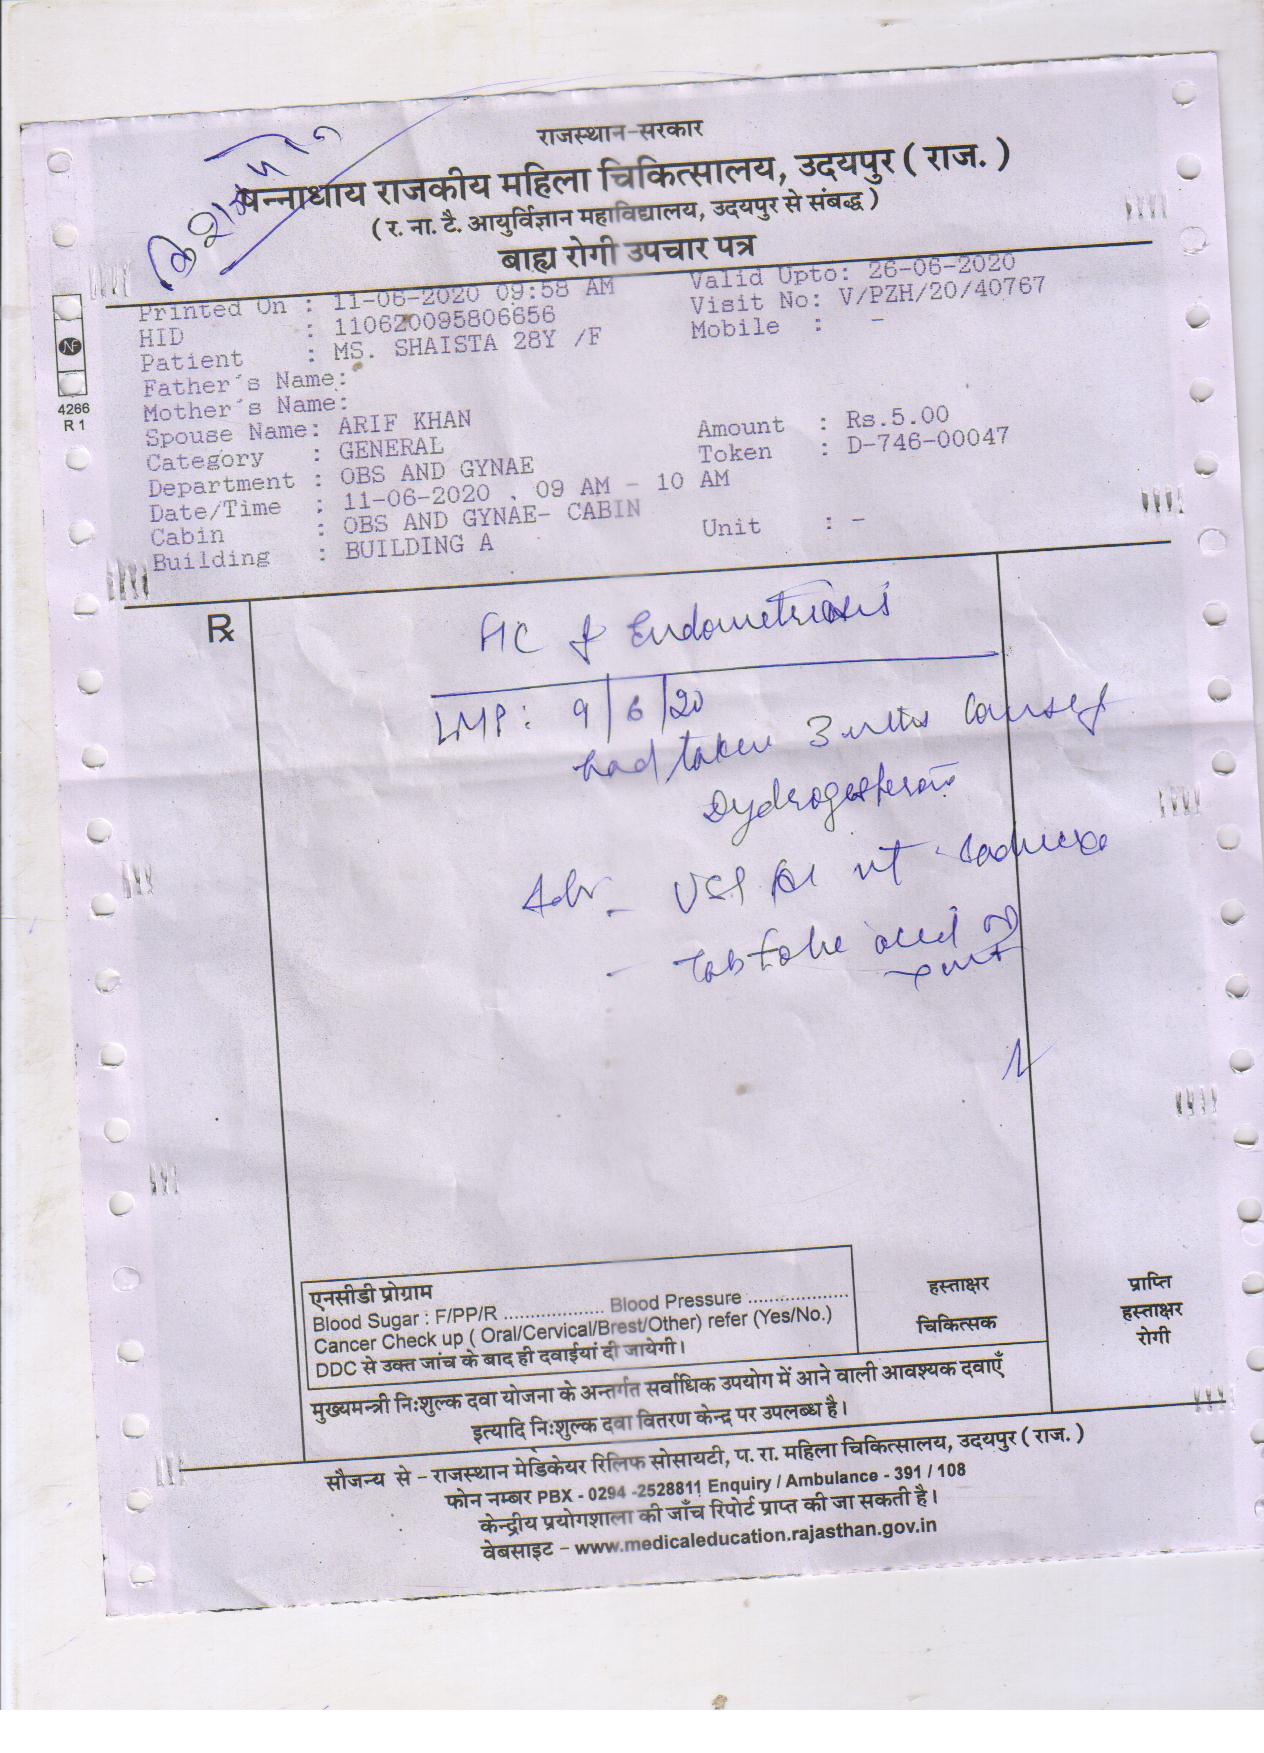 राजस्थान-सरकार
पन्नाधाय राजकीय महिला चिकित्सालय, उदयपुर ( राज. )
( र. ना. टै. आयुर्विज्ञान महाविद्यालय, उदयपुर से संबद्ध )
बाह्य रोगी उपचार पत्र
Printed On : 11-06-2020 09:58 AM Valid Upto: 26-06-2020
HID : 110620095806656 Visit No: V/PZH/20/40767
Patient : MS. SHAISTA 28Y /F Mobile : -
Father's Name:
Mother's Name:
Spouse Name: ARIF KHAN Amount : Rs.5.00
Category : GENERAL Token : D-746-00047
Department : OBS AND GYNAE
Date/Time : 11-06-2020 , 09 AM - 10 AM
Cabin : OBS AND GYNAE- CABIN Unit : -
Building : BUILDING A
NF
4266
R 1
Rx
Endometriosis
LMP: 9/6/20
had taken 3 mths course of
Dydrogesterone
Adv -
- Tab folic acid
एनसीडी प्रोग्राम
Blood Sugar : F/PP/R .................. Blood Pressure ..................
Cancer Check up ( Oral/Cervical/Brest/Other) refer (Yes/No.)
DDC से उक्त जांच के बाद ही दवाईयां दी जायेगी।
हस्ताक्षर
चिकित्सक
प्राप्ति
हस्ताक्षर
रोगी
मुख्यमन्त्री निःशुल्क दवा योजना के अन्तर्गत सर्वाधिक उपयोग में आने वाली आवश्यक दवाएँ
इत्यादि निःशुल्क दवा वितरण केन्द्र पर उपलब्ध है।
सौजन्य से – राजस्थान मेडिकेयर रिलिफ सोसायटी, प. रा. महिला चिकित्सालय, उदयपुर ( राज. )
फोन नम्बर PBX - 0294 -2528811 Enquiry / Ambulance - 391 / 108
केन्द्रीय प्रयोगशाला की जाँच रिपोर्ट प्राप्त की जा सकती है।
वेबसाइट – www.medicaleducation.rajasthan.gov.in